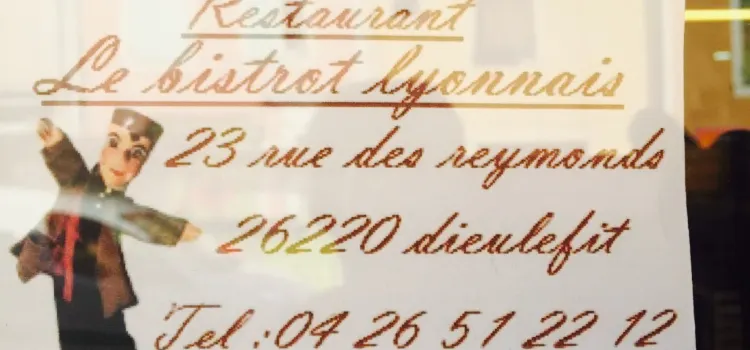 Restaurant
Le bistrot lyonnais
23 rue des reymonds
26220 dieulefit
Tel : 04 26 51 22 12